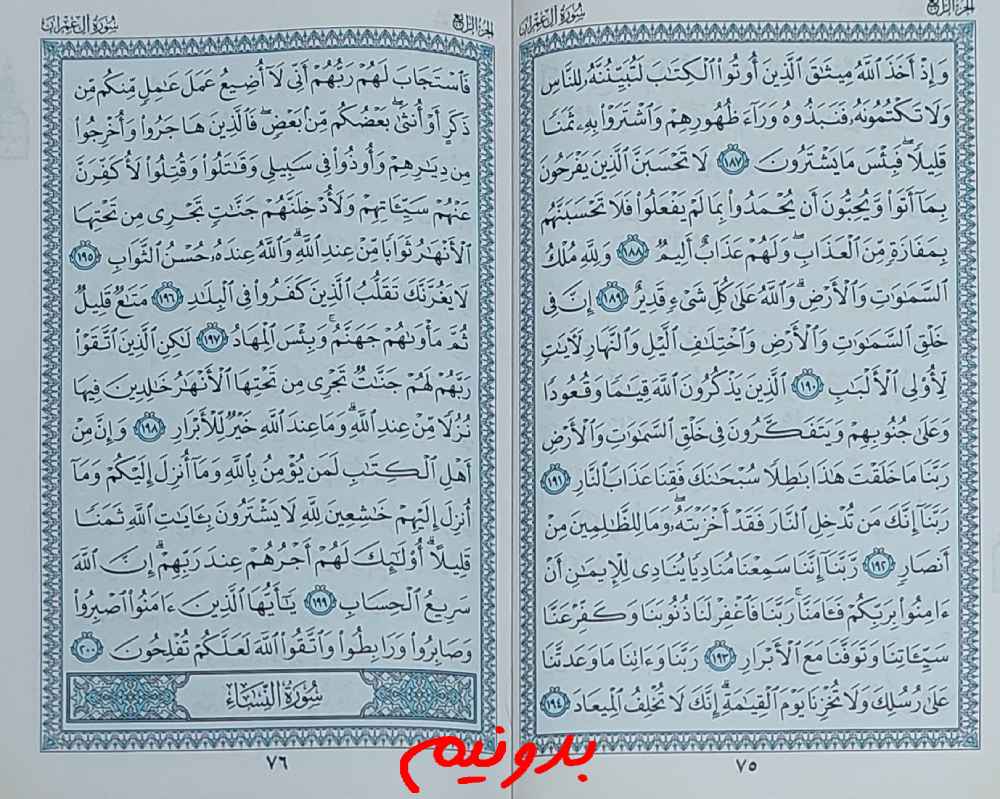 الجزء الرابع
سورة آل عمران
وَإِذْ أَخَذَ ٱللَّهُ مِيثَٰقَ ٱلَّذِينَ أُوتُوا۟ ٱلْكِتَٰبَ لَتُبَيِّنُنَّهُۥ لِلنَّاسِ
وَلَا تَكْتُمُونَهُۥ فَنَبَذُوهُ وَرَآءَ ظُهُورِهِمْ وَٱشْتَرَوْا۟ بِهِۦ ثَمَنًا
قَلِيلًا ۖ فَبِئْسَ مَا يَشْتَرُونَ ١٨٧ لَا تَحْسَبَنَّ ٱلَّذِينَ يَفْرَحُونَ
بِمَآ أَتَوا۟ وَّيُحِبُّونَ أَن يُحْمَدُوا۟ بِمَا لَمْ يَفْعَلُوا۟ فَلَا تَحْسَبَنَّهُم
بِمَفَازَةٍ مِّنَ ٱلْعَذَابِ ۖ وَلَهُمْ عَذَابٌ أَلِيمٌ ١٨٨ وَلِلَّهِ مُلْكُ
ٱلسَّمَٰوَٰتِ وَٱلْأَرْضِ ۗ وَٱللَّهُ عَلَىٰ كُلِّ شَىْءٍ قَدِيرٌ ١٨٩ إِنَّ فِى
خَلْقِ ٱلسَّمَٰوَٰتِ وَٱلْأَرْضِ وَٱخْتِلَٰفِ ٱلَّيْلِ وَٱلنَّهَارِ لَءَايَٰتٍ
لِّأُو۟لِى ٱلْأَلْبَٰبِ ١٩٠ ٱلَّذِينَ يَذْكُرُونَ ٱللَّهَ قِيَٰمًا وَقُعُودًا
وَعَلَىٰ جُنُوبِهِمْ وَيَتَفَكَّرُونَ فِى خَلْقِ ٱلسَّمَٰوَٰتِ وَٱلْأَرْضِ
رَبَّنَا مَا خَلَقْتَ هَٰذَا بَٰطِلًا سُبْحَٰنَكَ فَقِنَا عَذَابَ ٱلنَّارِ ١٩١
رَبَّنَآ إِنَّكَ مَن تُدْخِلِ ٱلنَّارَ فَقَدْ أَخْزَيْتَهُۥ ۖ وَمَا لِلظَّٰلِمِينَ مِنْ
أَنصَارٍ ١٩٢ رَّبَّنَآ إِنَّنَا سَمِعْنَا مُنَادِيًا يُنَادِى لِلْإِيمَٰنِ أَنْ
ءَامِنُوا۟ بِرَبِّكُمْ فَـَٔامَنَّا ۚ رَبَّنَا فَٱغْفِرْ لَنَا ذُنُوبَنَا وَكَفِّرْ عَنَّا
سَيِّـَٔاتِنَا وَتَوَفَّنَا مَعَ ٱلْأَبْرَارِ ١٩٣ رَبَّنَا وَءَاتِنَا مَا وَعَدتَّنَا
عَلَىٰ رُسُلِكَ وَلَا تُخْزِنَا يَوْمَ ٱلْقِيَٰمَةِ ۗ إِنَّكَ لَا تُخْلِفُ ٱلْمِيعَادَ ١٩٤
٧٥
الجزء الرابع
سورة آل عمران
فَٱسْتَجَابَ لَهُمْ رَبُّهُمْ أَنِّى لَآ أُضِيعُ عَمَلَ عَٰمِلٍ مِّنكُم مِّن
ذَكَرٍ أَوْ أُنثَىٰ ۖ بَعْضُكُم مِّنۢ بَعْضٍ ۖ فَٱلَّذِينَ هَاجَرُوا۟ وَأُخْرِجُوا۟
مِن دِيَٰرِهِمْ وَأُوذُوا۟ فِى سَبِيلِى وَقَٰتَلُوا۟ وَقُتِلُوا۟ لَأُكَفِّرَنَّ
عَنْهُمْ سَيِّـَٔاتِهِمْ وَلَأُدْخِلَنَّهُمْ جَنَّٰتٍ تَجْرِى مِن تَحْتِهَا
ٱلْأَنْهَٰرُ ثَوَابًا مِّنْ عِندِ ٱللَّهِ ۗ وَٱللَّهُ عِندَهُۥ حُسْنُ ٱلثَّوَابِ ١٩٥
لَا يَغُرَّنَّكَ تَقَلُّبُ ٱلَّذِينَ كَفَرُوا۟ فِى ٱلْبِلَٰدِ ١٩٦ مَتَٰعٌ قَلِيلٌ
ثُمَّ مَأْوَىٰهُمْ جَهَنَّمُ ۚ وَبِئْسَ ٱلْمِهَادُ ١٩٧ لَٰكِنِ ٱلَّذِينَ ٱتَّقَوْا۟
رَبَّهُمْ لَهُمْ جَنَّٰتٌ تَجْرِى مِن تَحْتِهَا ٱلْأَنْهَٰرُ خَٰلِدِينَ فِيهَا
نُزُلًا مِّنْ عِندِ ٱللَّهِ ۗ وَمَا عِندَ ٱللَّهِ خَيْرٌ لِّلْأَبْرَارِ ١٩٨ وَإِنَّ مِنْ
أَهْلِ ٱلْكِتَٰبِ لَمَن يُؤْمِنُ بِٱللَّهِ وَمَآ أُنزِلَ إِلَيْكُمْ وَمَآ
أُنزِلَ إِلَيْهِمْ خَٰشِعِينَ لِلَّهِ لَا يَشْتَرُونَ بِـَٔايَٰتِ ٱللَّهِ ثَمَنًا
قَلِيلًا ۗ أُو۟لَٰٓئِكَ لَهُمْ أَجْرُهُمْ عِندَ رَبِّهِمْ ۗ إِنَّ ٱللَّهَ
سَرِيعُ ٱلْحِسَابِ ١٩٩ يَٰٓأَيُّهَا ٱلَّذِينَ ءَامَنُوا۟ ٱصْبِرُوا۟
وَصَابِرُوا۟ وَرَابِطُوا۟ وَٱتَّقُوا۟ ٱللَّهَ لَعَلَّكُمْ تُفْلِحُونَ ٢٠٠
سُورَةُ النِّسَاءِ
٧٦
بدونیم